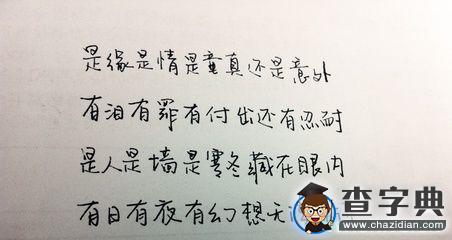 是缘是情是童真还是意外
有泪有罪有付出还有忍耐
是人是墙是寒冬藏在眼内
有日有夜有幻想无
查字典
www.chazidian.com